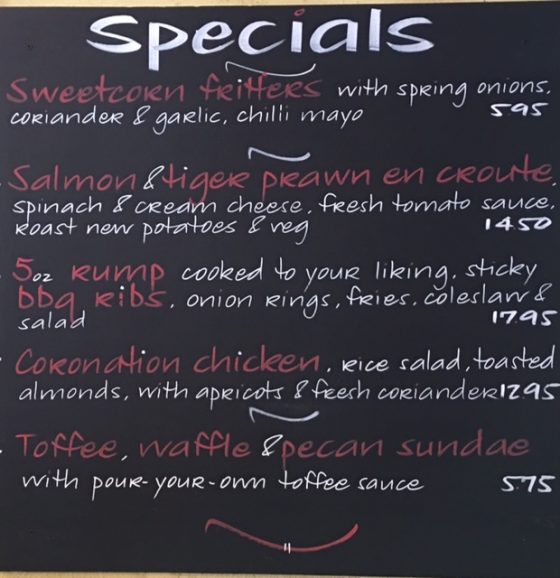 Specials
Sweetcorn fritters with spring onions,
coriander & garlic, chilli mayo 595
Salmon & tiger prawn en croute,
spinach & cream cheese, fresh tomato sauce,
roast new potatoes & veg 1450
5oz rump cooked to your liking, sticky
bbq ribs, onion rings, fries, coleslaw &
salad 1795
Coronation chicken, rice salad, toasted
almonds, with apricots & fresh coriander 1295
Toffee, waffle & pecan sundae
with pour-your-own toffee sauce 575